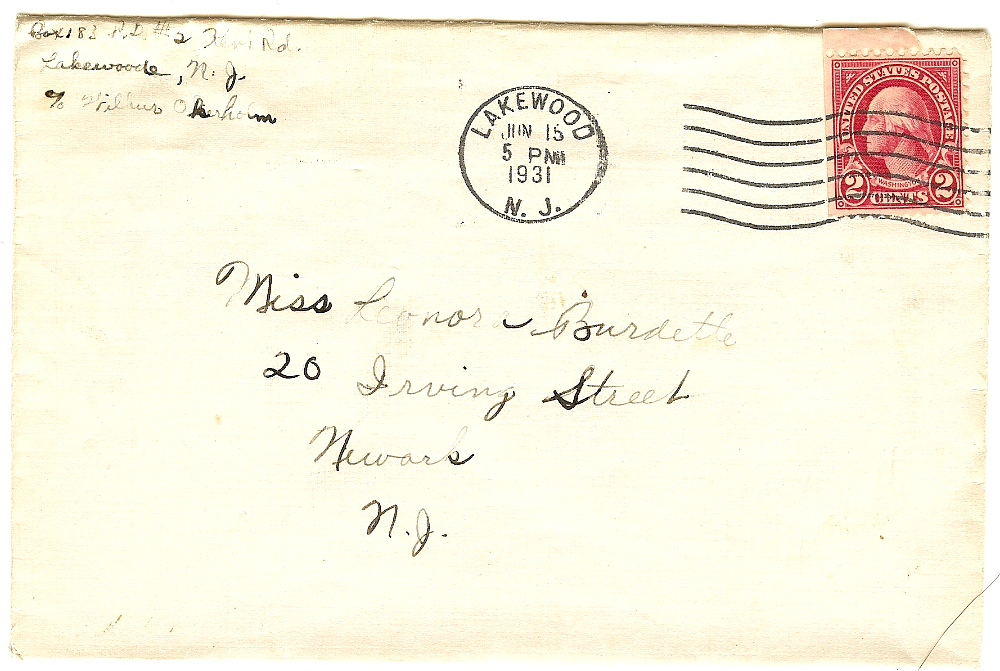 Box 183 R.D. #2 Rd.
Lakewoode, N.J.
% Wilbur
LAKEWOOD
JUN 15
5 PM
1931
N. J.
UNITED STATES POSTAGE
WASHINGTON
2 CENTS 2
Miss Leonora Burdette
20 Irving Street
Newark
N.J.